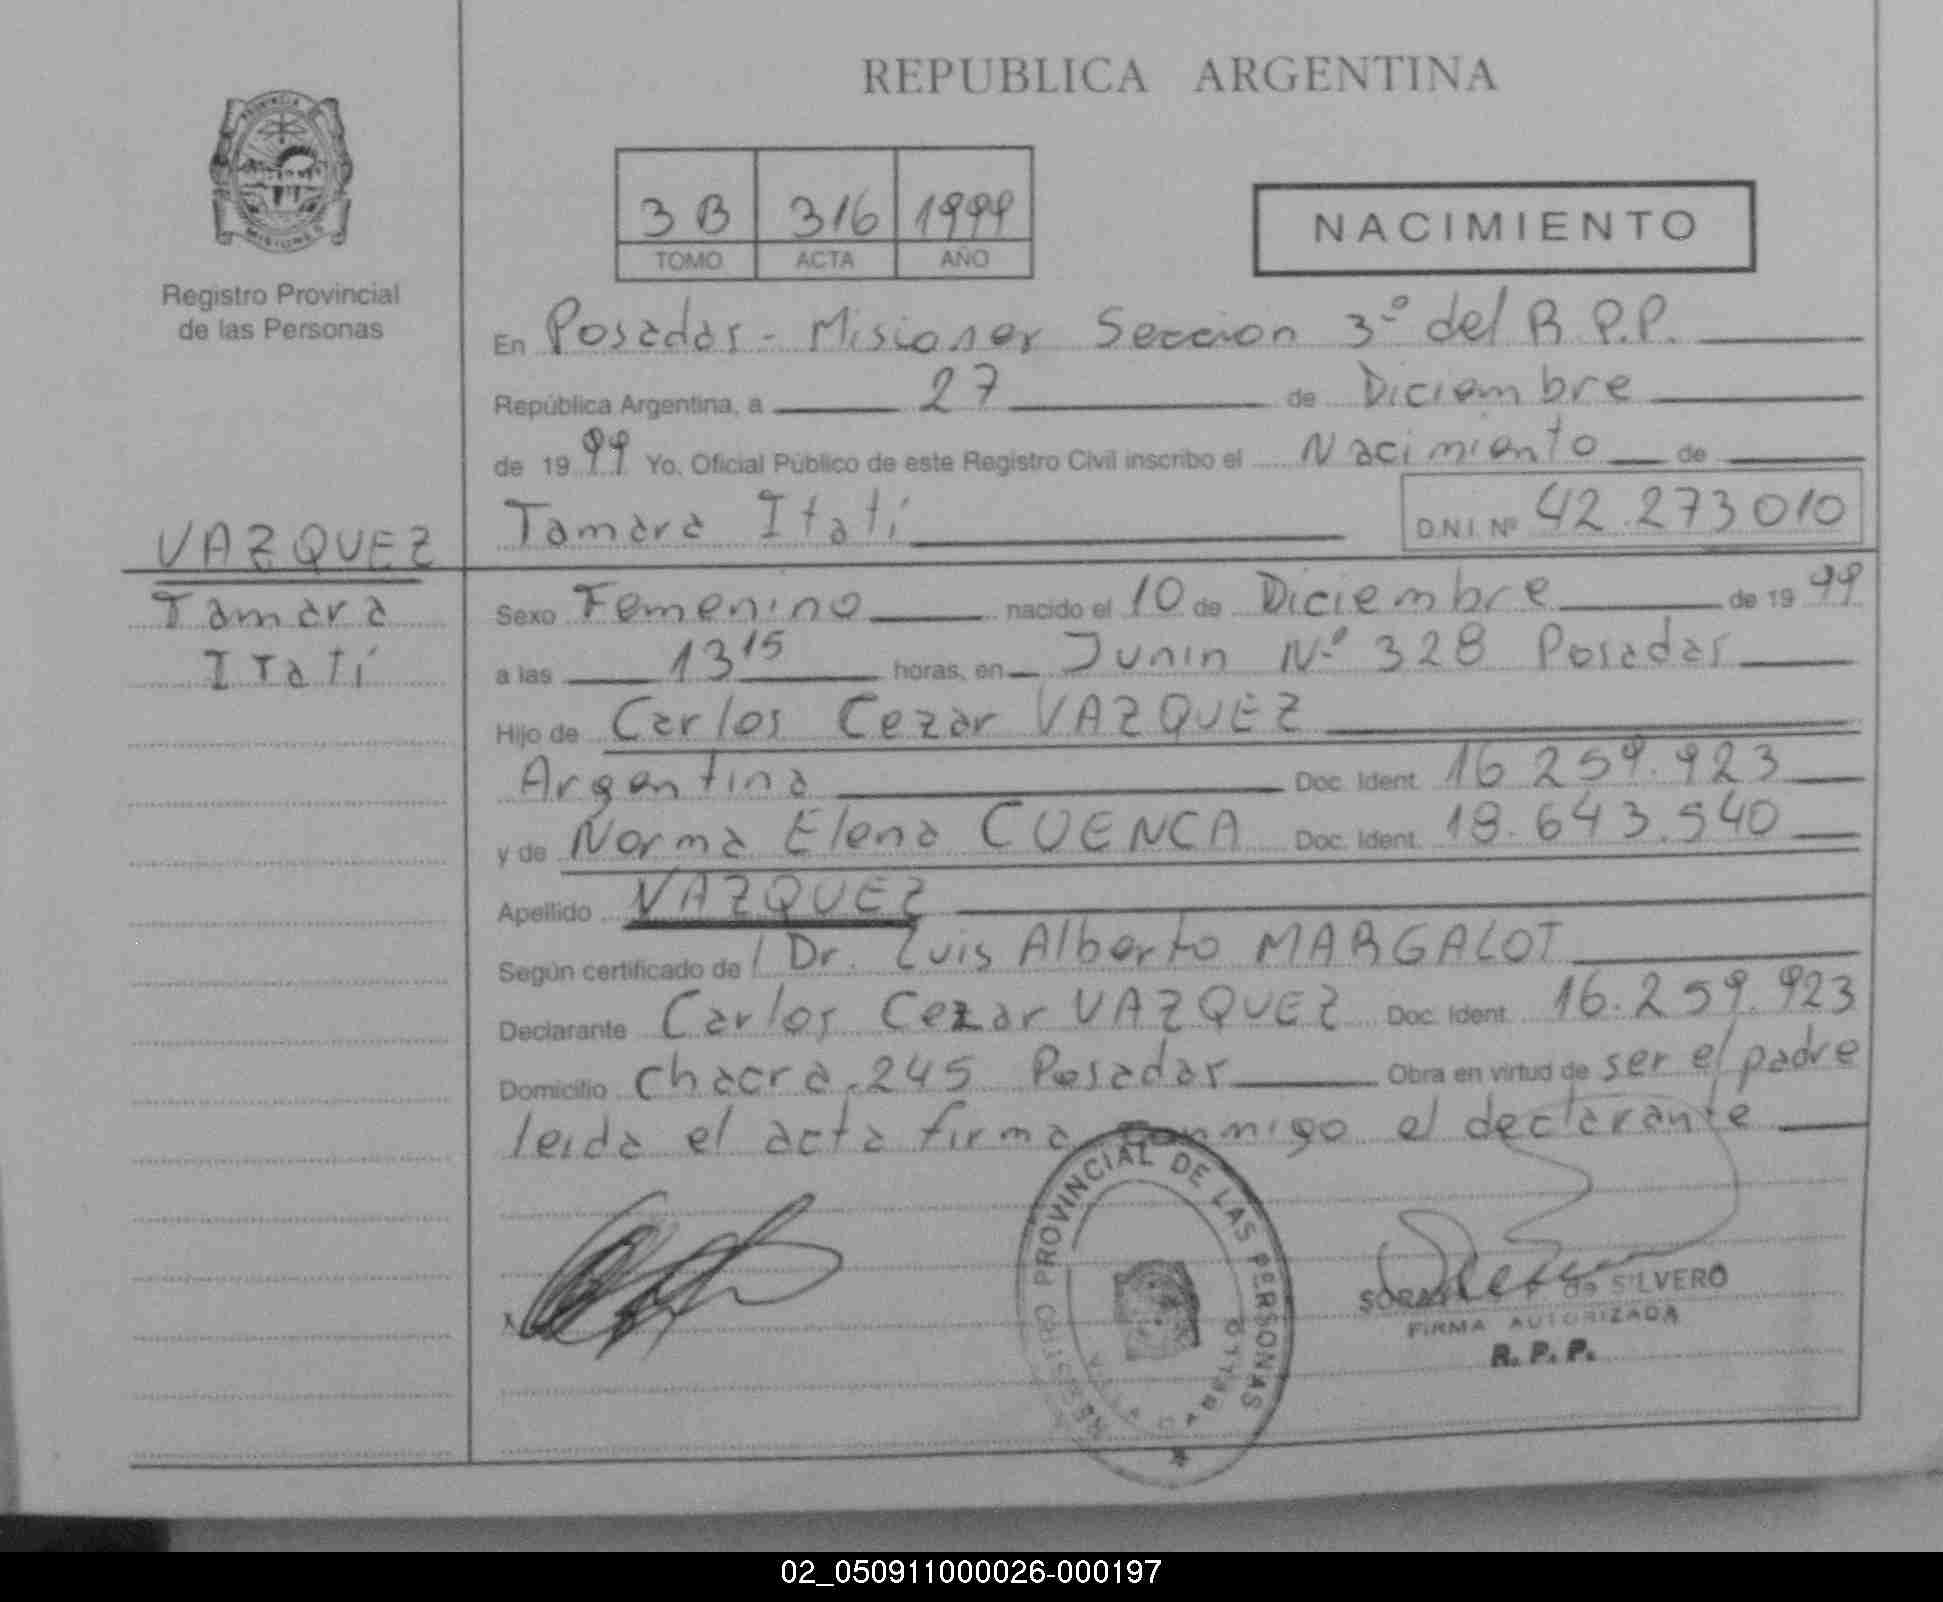 REPUBLICA ARGENTINA
PROVINCIA
MISIONES
Registro Provincial
de las Personas
3 B 316 1999
TOMO ACTA AÑO
NACIMIENTO
En Posadas - Misiones Seccion 3º del R.P.P.
República Argentina, a 27 de Diciembre
de 1999 Yo, Oficial Público de este Registro Civil inscribo el Nacimiento de
Tamara Itatí D.N.I. Nº 42.273010
VAZQUEZ
Tamara
Itatí
Sexo Femenino nacido el 10 de Diciembre de 1999
a las 13 15 horas, en Junin Nº 328 Posadas
Hijo de Carlos Cezar VAZQUEZ
Argentina Doc. Ident. 16.259.923
y de Norma Elena CUENCA Doc. Ident. 18.643.540
Apellido VAZQUEZ
Según certificado de Dr. Luis Alberto MARGALOT
Declarante Carlos Cezar VAZQUEZ Doc. Ident. 16.259.923
Domicilio Chacra 245 Posadas Obra en virtud de ser el padre
leida el acta firma conmigo el declarante
REGISTRO PROVINCIAL DE LAS PERSONAS
de SILVERO
FIRMA AUTORIZADA
R. P. P.
02_050911000026-000197